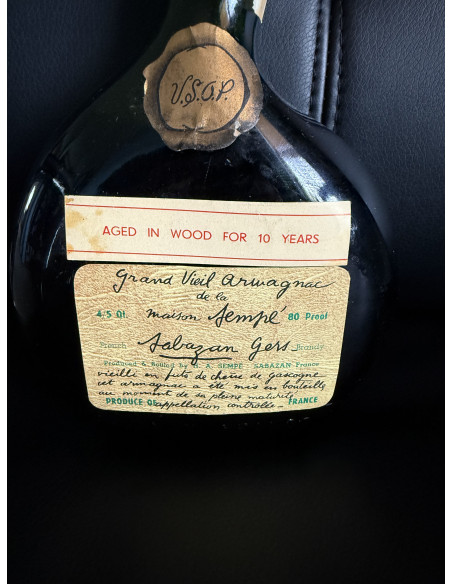 V.S.O.P.
AGED IN WOOD FOR 10 YEARS
Grand Vieil Armagnac
de la
4/5 Qt. maison Sempé 80 Proof
French Sabazan Gers Brandy
Produced & Bottled by H. A. SEMPÉ - SABAZAN-France
vieilli en fûts de chêne de gascogne
cet armagnac a été mis en bouteille
au moment de sa pleine maturité
PRODUCE OF appellation contrôlée FRANCE